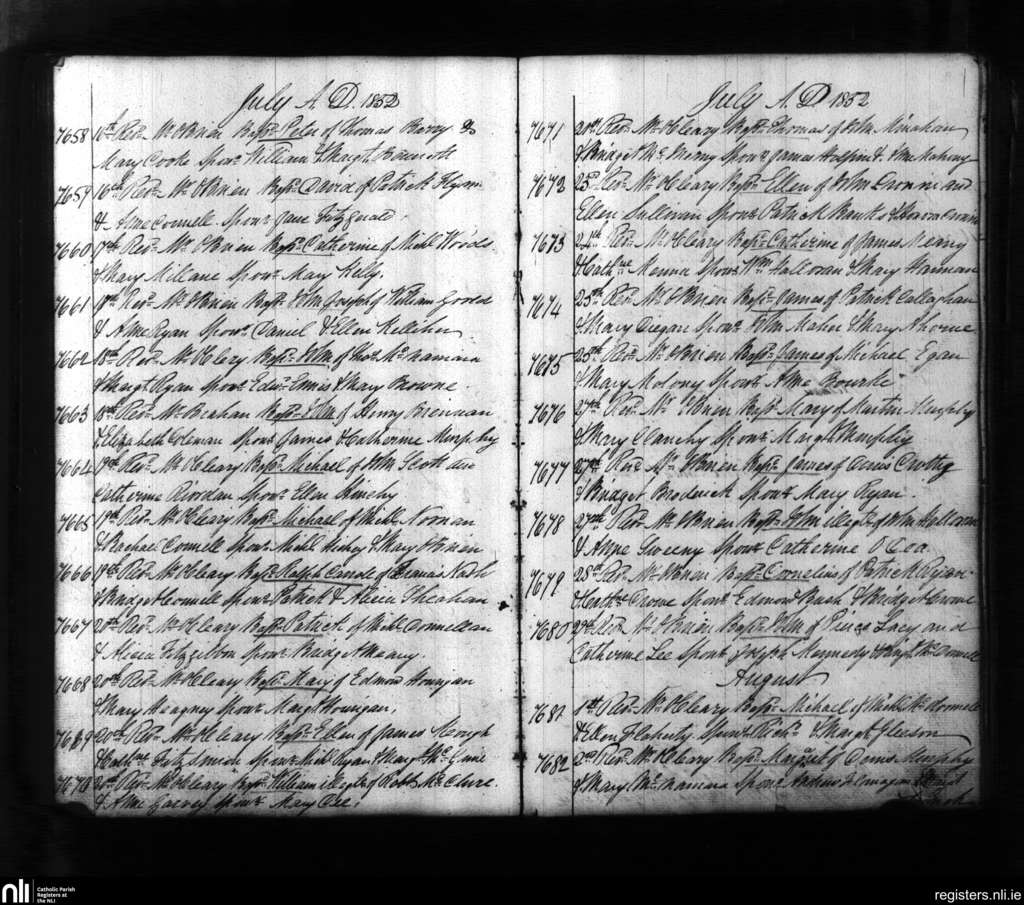 July A. D. 1852
7658 16th Revd. Mr. OBrien Baptd. Peter of Thomas Berry &
Mary Cooke Sponr. William & Margt.
7659 16th Revd. Mr. OBrien Baptd. David of Patrick Flynn
& Anne Connell Sponr. Jane Fitzgerald.
7660 17th Revd. Mr. OBrien Baptd. Catherine of Michl. Woods
& Mary Millane Sponr. Mary Kiely.
7661 18th Revd. Mr. OBrien Baptd. John Joseph of William Goold
& Anne Ryan Sponr. Daniel & Ellen Kelleher
7662 18th Revd. Mr. OCleary Baptd. John of Thos. McNamara
& Margt. Ryan Sponr. Edwd. Ennis & Mary Browne.
7663 18th Revd. Mr. Baptd. Ellen of Denny Brennan
& Elizabeth Coleman Sponr. James & Catherine Murphy
7664 19th Revd. Mr. OCleary Baptd. Michael of John Scott an
Catherine Riordan Sponr. Ellen Hinchy
7665 19th Revd. Mr. OCleary Baptd. Michael of Michl. Noonan
& Rachael Connell Sponr. Michl. Hickey & Mary OBrien
7666 19th Revd. Mr. OCleary Baptd. Ralph of Francis Nash
& Bridget Connell Sponr. Patrick & Alicia Sheahan
7667 20th Revd. Mr. OCleary Baptd. Patrick of Michl. Connellan
& Alicia Fitzgibbon Sponr. Bridget Meany.
7668 20th Revd. Mr. OCleary Baptd. Mary of Edmond Hourigan
& Mary Heagney Sponr. Margt. Hourigan.
7669 20th Revd. Mr. OCleary Baptd. Ellen of James Keough
& Cathne. Fitz Simons Sponr. Michl. Ryan & Margt.
7670 20th Revd. Mr. OCleary Baptd. William of Robt. McClure.
& Anne Garvey Sponr. Mary Dee.
July A. D 1852
7671 20th Revd. Mr. OCleary Baptd. Thomas of John Minahan
& Bridget Sponr. James Halpin & Anne Mahony
7672 25th Revd. Mr. OCleary Baptd. Ellen of John Cronin and
Ellen Sullivan Sponr. Patrick &
7673 24th Revd. Mr. OCleary Baptd. Catherine of James Meany
& Cathne. Sponr. Wm. Halloran & Mary
7674 25th Revd. Mr. OBrien Baptd. James of Patrick Callaghan
& Mary Deegan Sponr. John Maher & Mary Aherne
7675 25th Revd. Mr. OBrien Baptd. James of Michael Egan
& Mary Molony Sponr. Anne Bourke
7676 27th Revd. Mr. OBrien Baptd. Mary of Martin Murphy
& Mary Clanchy Sponr. Margt. Murphy
7677 27th Revd. Mr. OBrien Baptd. James of Denis Crotty
& Bridget Broderick Sponr. Mary Ryan.
7678 27th Revd. Mr. OBrien Baptd. John of John Halloran
& Anne Sweeny Sponr. Catherine O Dea.
7679 28th Revd. Mr. OBrien Baptd. Cornelius of Patrick Ryan
& Cathe. Crowe Sponr. Edmond & Bridget Crowe
7680 29th Revd. Mr. OBrien Baptd. John of Pierce Lacy and
Catherine Lee Sponr. Joseph Kennedy & Margt. McDonnell
August
7681 1st Revd. Mr. OCleary Baptd. Michael of Michl. McDonnell
& Ellen Flaherty Sponr. Richd. & Margt. Gleeson
7682 2nd Revd. Mr. OCleary Baptd. Margaret of Denis Murphy
& Mary McNamara Sponr. Andrew
nli
Catholic Parish
Registers at
the NLI
registers.nli.ie